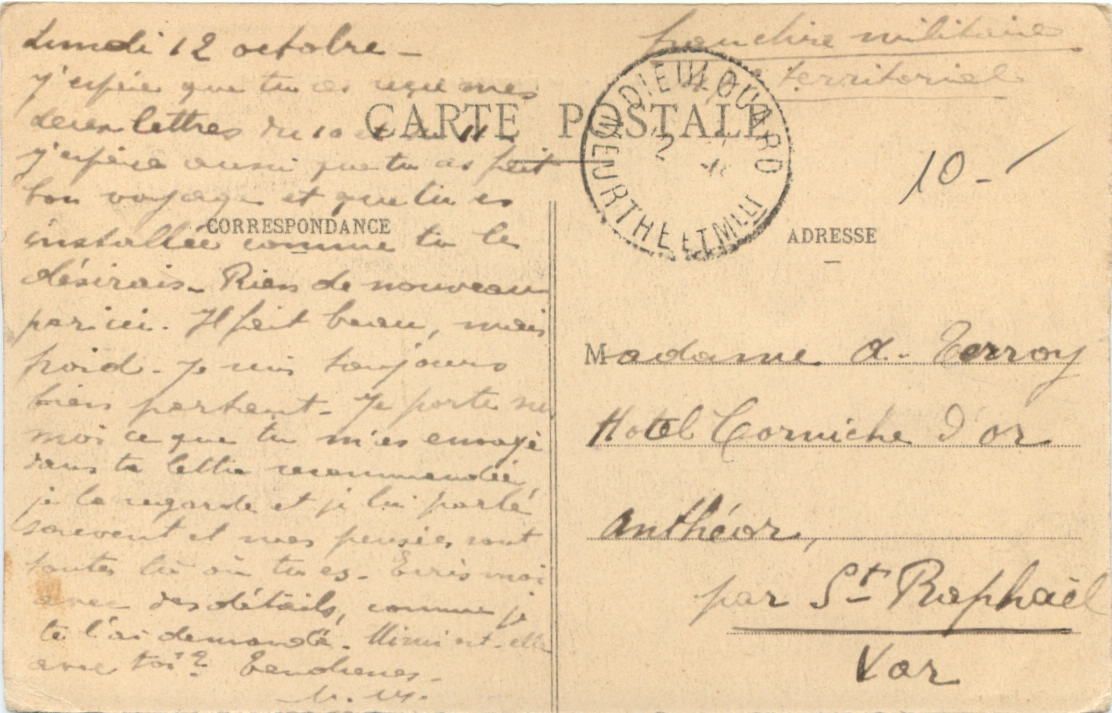 Lundi 12 octobre -
J'espère que tu as reçu mes
deux lettres du 10 et du 11 -
J'espère aussi que tu as fait
bon voyage et que tu es
installée comme tu le
désirais - Rien de nouveau
par ici. Il fait beau, mais
froid - Je suis toujours
bien portant - Je porte sur
moi ce que tu m'as envoyé
dans ta lettre recommandée,
je le regarde et je lui parle
souvent et mes pensées sont
toutes là où tu es - Ecris moi
avec des détails, comme je
te l'ai demandé - Mimi est-elle
avec toi ? Tendresses -
franchise militaire
territorial
CARTE POSTALE
DIEULOUARD
MEURTHE ET M
10 -
CORRESPONDANCE
ADRESSE
Madame A. Terroy
Hotel Corniche d'or
Anthéor,
par St Raphaël
Var